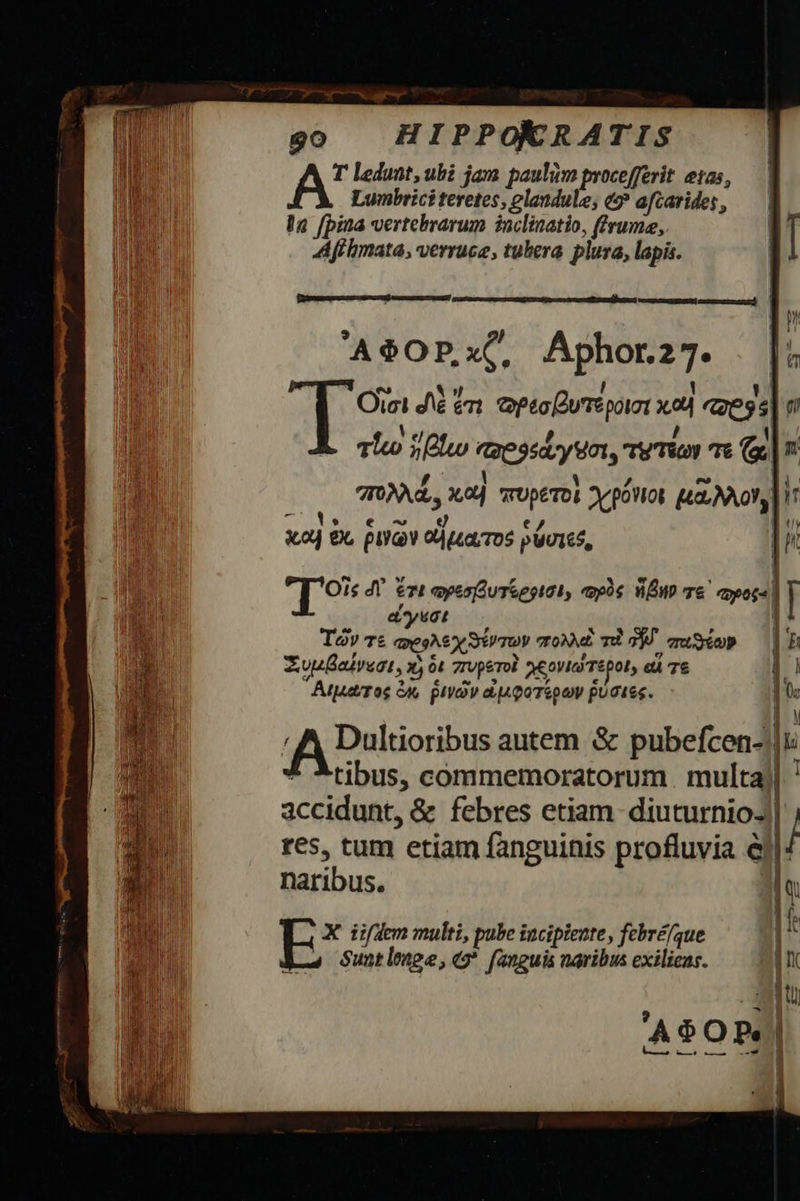 90 HIPPOKRATIS
AT ledunt, ubi jam paulùm processerit etas,
Lumbrici teretes, glandulę, & ascarides,
In spina vertebrarum inclinatio, strumę,
Asthmata, verrucę, tubera plura, lapis.
ἈΦΟΡ. κζʹ. Aphor. 27.
Τοῖσι δὲ ἔτι πρεσβυτέροισι καὶ πρὸς
τὴν ἥβην προσάγουσι, τουτέων τε τὰ
πολλά, καὶ πυρετοὶ χρόνιοι μᾶλλον,
καὶ ἐκ ῥινῶν αἵματος ῥύσιες,
Τοῖς δ' ἔτι πρεσβυτέροισι, πρὸς ἥβην τε προσ-
άγουσι
Τῶν τε προλεχθέντων πολλὰ τὰ τῶν παθέων
Συμβαίνουσι, χ̀ ὁι πυρετοὶ χρονιώτεροι, αἵ τε
Αἵματος ἐκ ῥινῶν ἀμφοτέρων ῥύσιες.
ADultioribus autem & pubescen-
tibus, commemoratorum multa
accidunt, & febres etiam diuturnio-
res, tum etiam sanguinis profluvia è
naribus.
EX iisdem multi, pube incipiente, febrésque
Sunt longę, & sanguis naribus exiliens.
ἈΦΟΡ.